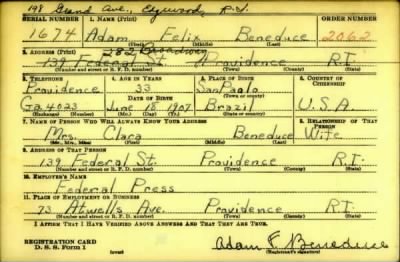 198 Grand Ave., Edgewood, R.I.
SERIAL NUMBER 1. NAME (Print) ORDER NUMBER
1674 Adam Felix Beneduce 2062
(First) (Middle) (Last)
282 Broadway
2. ADDRESS (Print)
139 Federal St. Providence R.I.
(Number and street or R. F. D. number) (Town) (County) (State)
3. TELEPHONE 4. AGE IN YEARS 5. PLACE OF BIRTH 6. COUNTRY OF CITIZENSHIP
Providence 33 San Paolo
DATE OF BIRTH (Town or county)
Ga. 4023 June 18 1907 Brazil U.S.A.
(Exchange) (Number) (Mo.) (Day) (Yr.) (State or country)
7. NAME OF PERSON WHO WILL ALWAYS KNOW YOUR ADDRESS 8. RELATIONSHIP OF THAT PERSON
Mrs. Clara Beneduce Wife
(Mr., Mrs., Miss) (First) (Middle) (Last)
9. ADDRESS OF THAT PERSON
139 Federal St. Providence R.I.
(Number and street or R. F. D. number) (Town) (County) (State)
10. EMPLOYER'S NAME
Federal Press
11. PLACE OF EMPLOYMENT OR BUSINESS
73 Atwells Ave. Providence R.I.
(Number and street or R. F. D. number) (Town) (County) (State)
I AFFIRM THAT I HAVE VERIFIED ABOVE ANSWERS AND THAT THEY ARE TRUE.
REGISTRATION CARD
D. S. S. Form 1 (over) Adam F. Beneduce
(Registrant's signature)